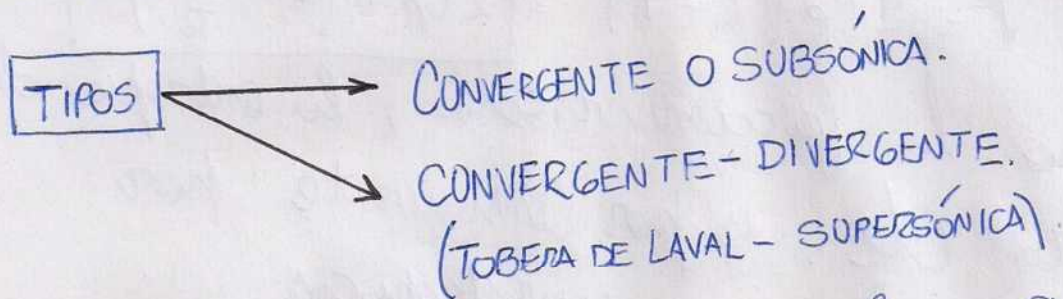 TIPOS
CONVERGENTE O SUBSÓNICA.
CONVERGENTE - DIVERGENTE.
(TOBERA DE LAVAL - SUPERSÓNICA).